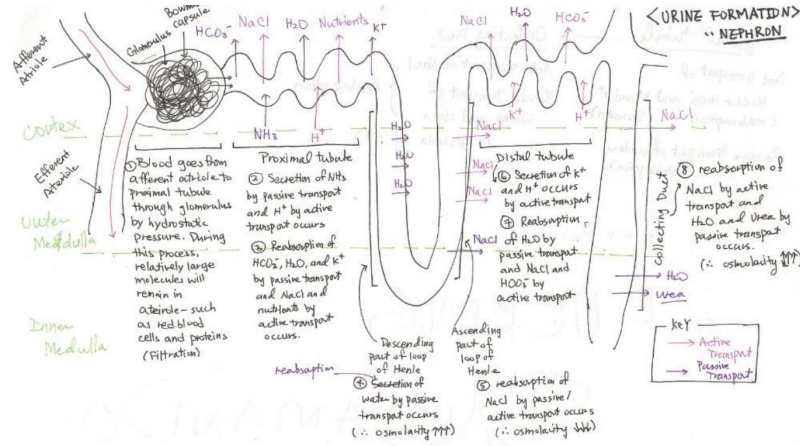 <URINE FORMATION>
∵ NEPHRON
Bowman
capsule
Glomerulus
Afferent
Atriole
HCO₃⁻
NaCl
H₂O
Nutrients
K⁺
NaCl
H₂O
HCO₃⁻
NH₃
H⁺
H₂O
H₂O
H₂O
NaCl
NaCl
NaCl
NaCl
K⁺
H⁺
NaCl
Cortex
Efferent
Arteriole
Outer
Medulla
Inner
Medulla
① Blood goes from
afferent atriole to
proximal tubule
through glomerulus
by hydrostatic
pressure. During
this process,
relatively large
molecules will
remain in
ateirole- such
as red blood
cells and proteins
(Filtration)
Proximal tubule
② Secretion of NH3
by passive transport
and H⁺ by active
transport occurs
③ Reabsorption of
HCO₃⁻, H₂O, and K⁺
by passive transport
and NaCl and
nutrients by
active transport
occurs.
Descending
part of loop
of Henle
reabsorption
④ Secretion of
water by passive
transport occurs
(∴ osmolarity ↑↑↑)
Ascending
part of
loop of
Henle
⑤ reabsorption of
NaCl by passive/
active transport occurs
(∴ osmolarity ↓↓↓)
Distal tubule
⑥ Secretion of K⁺
and H⁺ occurs
by active transport
⑦ Reabsorption
of H₂O by
passive transport
and NaCl and
HCO₃⁻ by
active transport
Collecting Duct
⑧ reabsorption of
NaCl by active
transport and
H₂O and Urea by
passive transport
occurs.
(∴ osmolarity ↑↑↑)
H₂O
Urea
KEY
Active
Transport
Passive
Transport